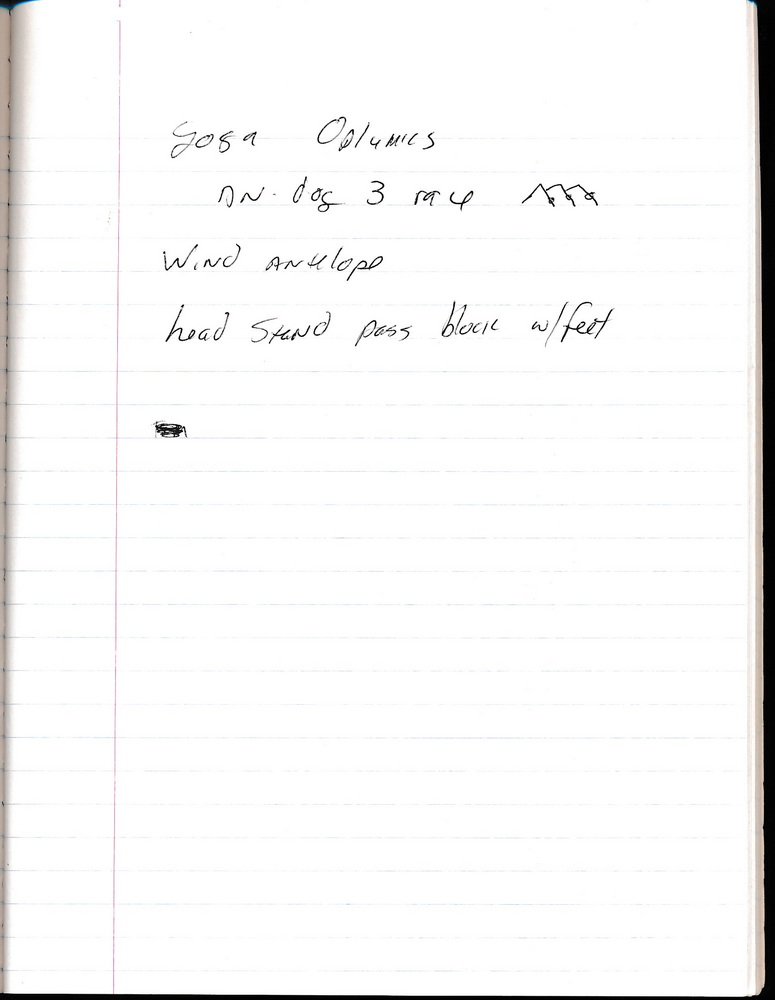 Yoga Oplymics
DN. dog 3 race
Wind antelope
head stand pass block w/feet